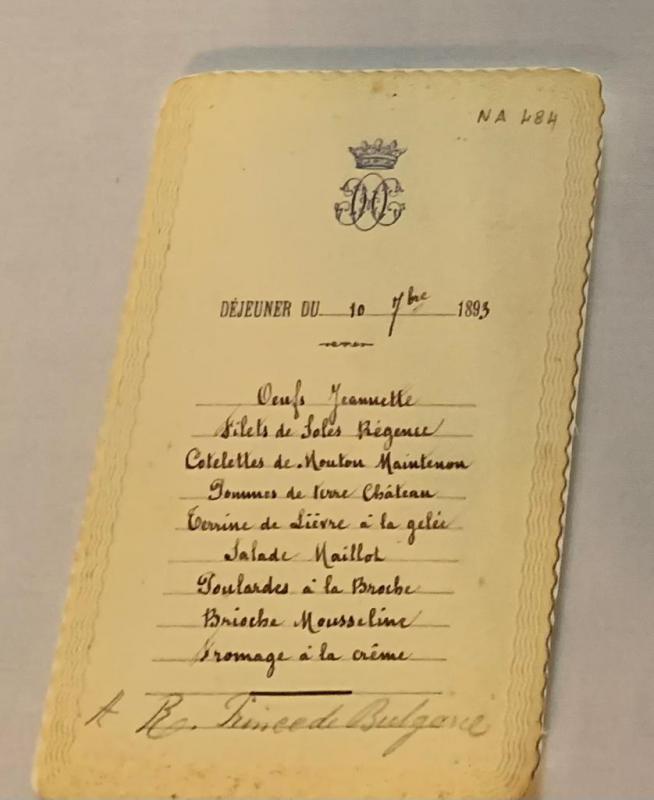 NA 484
DÉJEUNER DU 10 7bre 1893
Oeufs Jeannette
Filets de Soles Régence
Cotelettes de Mouton Maintenon
Pommes de terre Château
Terrine de Lièvre à la gelée
Salade Maillot
Poulardes à la Broche
Brioche Mousseline
Fromage à la crême
Prince de Bulgarie